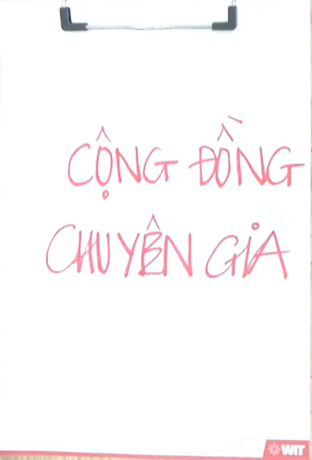 CỘNG ĐỒNG
CHUYÊN GIA
WIT